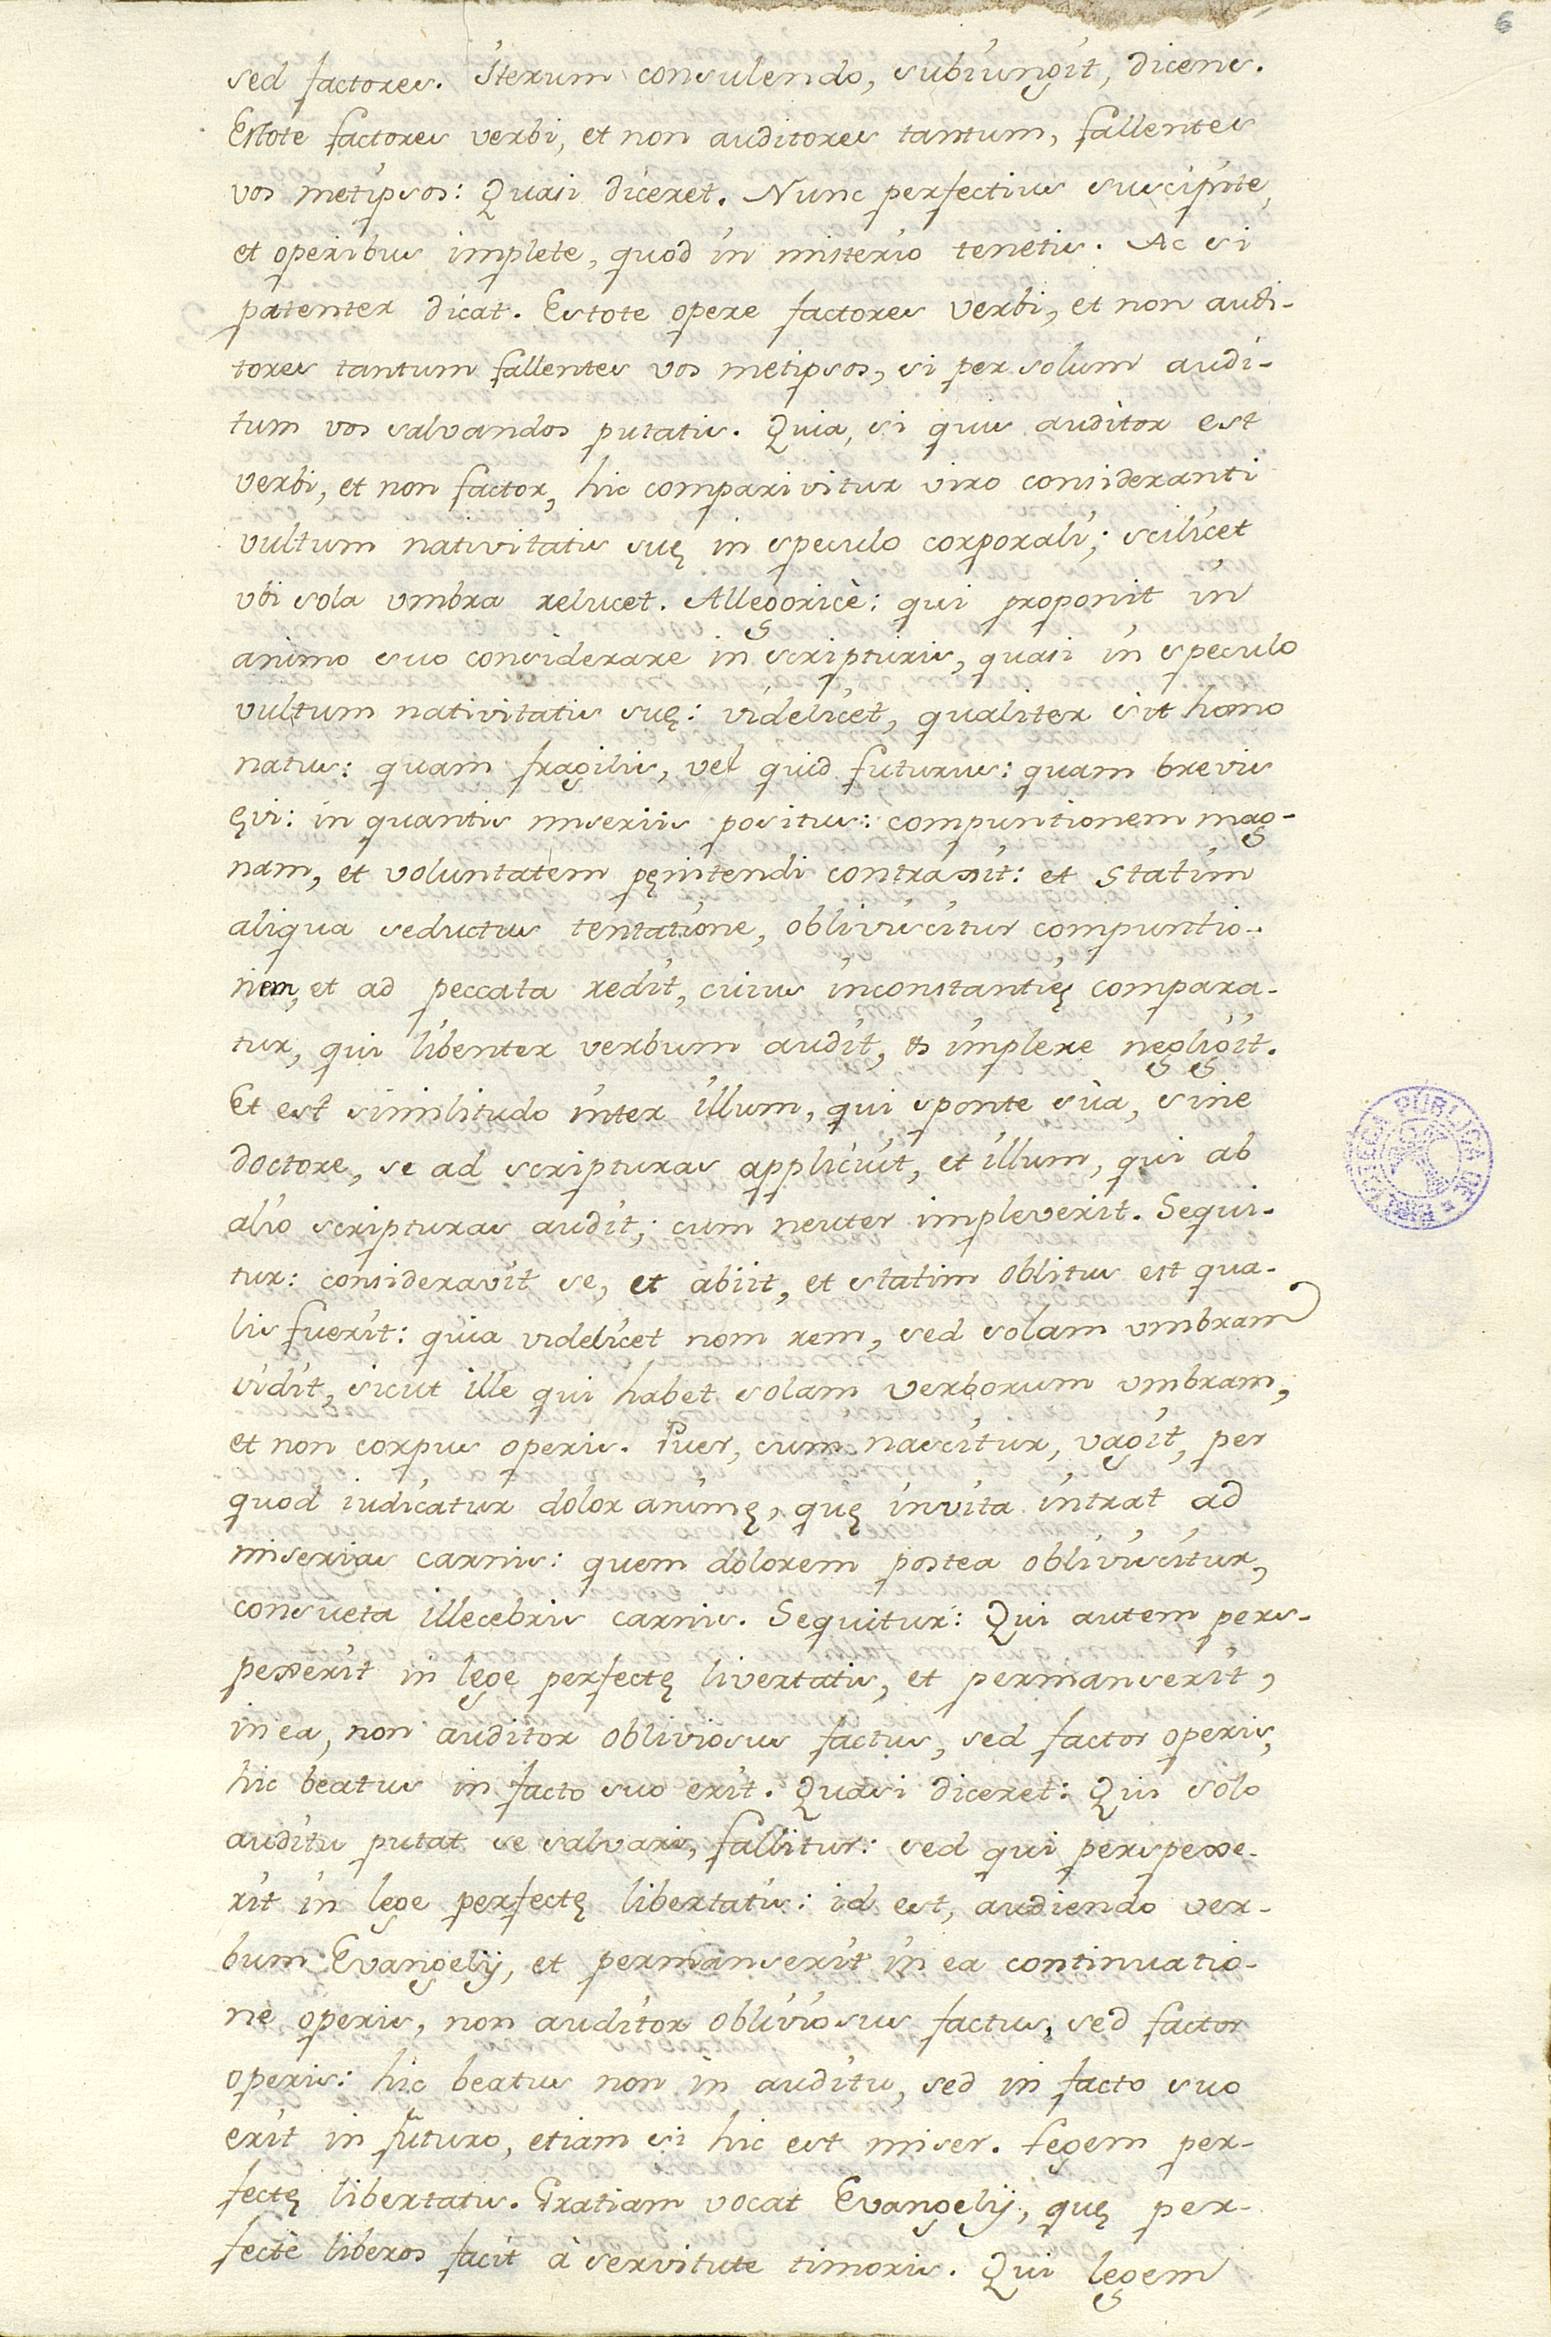 6
sed factores. Iterum consulendo, subiungit, dicens.
Estote factores verbi, et non auditores tantum, fallentes
vos metipsos: Quasi diceret. Nunc perfectius suscipite,
et operibus implete, quod in misterio tenetis. Ac si
patenter dicat. Estote opere factores verbi, et non audi-
tores tantum fallentes vos metipsos, si per solum audi-
tum vos salvandos putatis. Quia, si quis auditor est
verbi, et non factor, hic comparivitur viro consideranti
vultum nativitatis suę in speculo corporali; scilicet
vbi sola vmbra relucet. Allegoricè: qui proponit in
animo suo considerare in scripturis, quasi in speculo
vultum nativitatis suę: videlicet, qualiter sit homo
natus: quam fragilis, vel quid futurus: quam brevis
ęvi: in quantis miseriis positus: compuntionem mag-
nam, et voluntatem pęnitendi contraxit: et statim
aliqua seductus tentatione, obliviscitur compuntio-
nem, et ad peccata redit, cuius inconstantię compara-
tur, qui libenter verbum audit, & implere negligit.
Et est similitudo inter illum, qui sponte sùa, sine
doctore, se ad scripturas applicuit, et illum, qui ab
alio scripturas audit; cum neuter impleverit. Sequi-
tur: consideravit se, et abiit, et statim oblitus est qua-
lis fuerit: quia videlicet nom rem, sed solam vmbram
vidit, sicut ille qui habet solam verborum vmbram,
et non corpus operis. Puer, cum nascitur, vagit, per
quod iudicatur dolor animę, quę invita intrat ad
miserias carnis: quem dolorem postea obliviscitur,
consueta illecebris carnis. Sequitur: Qui autem pers-
pexerit in lege perfectę livertatis, et permanserit,
in ea, non auditor obliviosus factus, sed factor operis,
hic beatus in facto suo erit. Quasi diceret: Qui solo
auditu putat se salvari, fallitur: sed qui perspexe-
rit in lege perfectę libertatis: id est, audiendo ver-
bum Evangelij, et permanserit in ea continuatio-
ne operis, non auditor obliviosus factus, sed factor
operis: hic beatus non in auditu, sed in facto suo
erit in futuro, etiam si hic est miser. Legem per-
fectę libertatis. Gratiam vocat Evangelij, quę per-
fectè liberos facit à servitute timoris. Qui legem